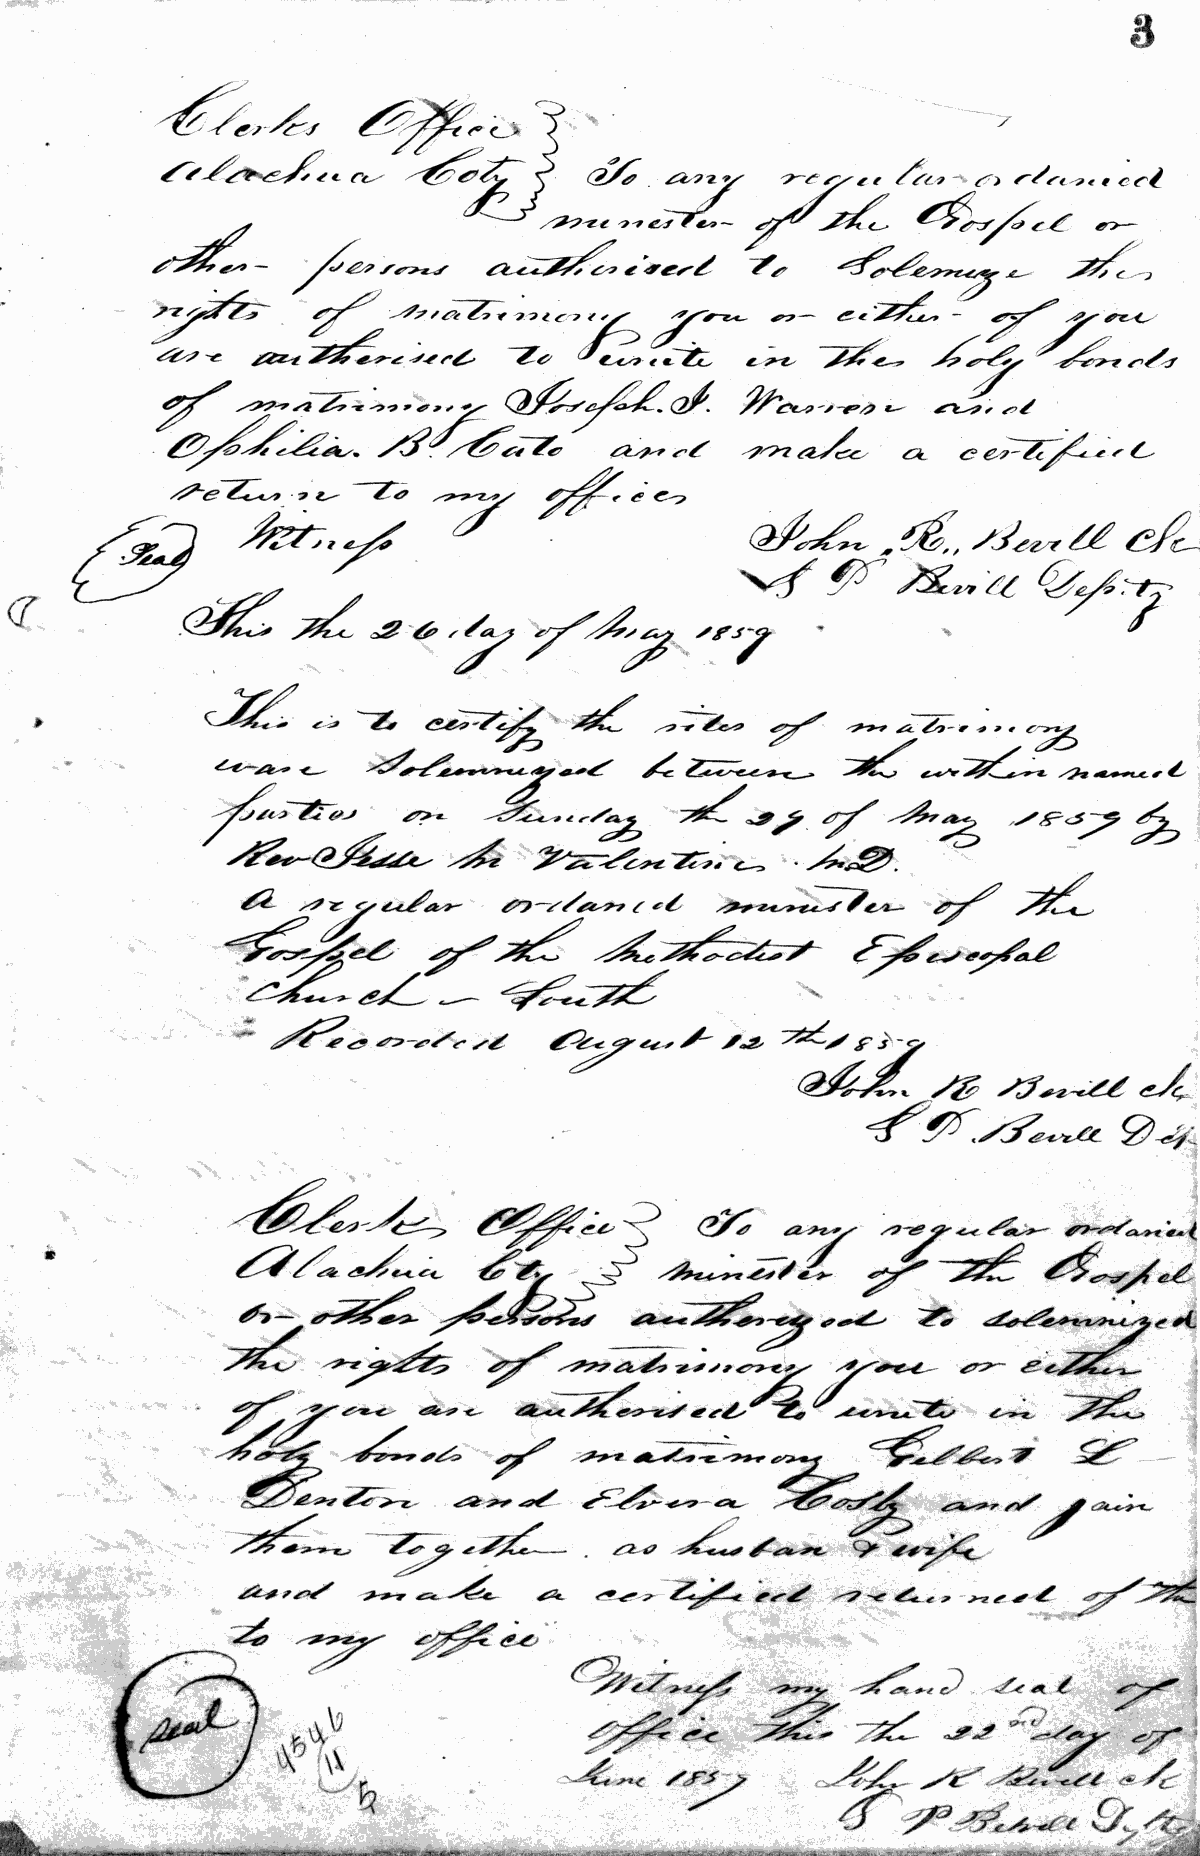 3
Clerks Office
Alachua Coty To any regular ordanied
minester of the Gospel or
other persons authorised to Solemnize the
rights of matrimony you or either of you
are autherised to unite in the holy bonds
of matrimony Joseph. J. Warren and
Ophilia. B. Cato and make a certified
return to my office
Seal Witness John R. Bevill Clk
S P Bevill Depity
This the 26 day of May 1859
This is to certify the rites of matrimony
ware Solemnized between the within named
parties on Sunday the 29 of May 1859 by
Rev Jesse M Valentine M.D.
A regular ordaned minister of the
Gospel of the Methodist Episcopal
Church - South
Recorded August 12th 1859
John R Bevill clk
S P. Bevill Det
Clerks Office To any regular ordanied
Alachua Cty minester of the Gospel
or other persons autherized to solemnized
the rights of matrimony you or either
of you are autherised to unite in the
holy bonds of matrimony Gilbert L
Denton and Elvira Cosby and jain
them together as husban & wife
and make a certified returned of the
to my office
Witness my hand seal of
seal office this the 22nd day of
June 1859 John R Bevill clk
S P Bevill
4546
11
5